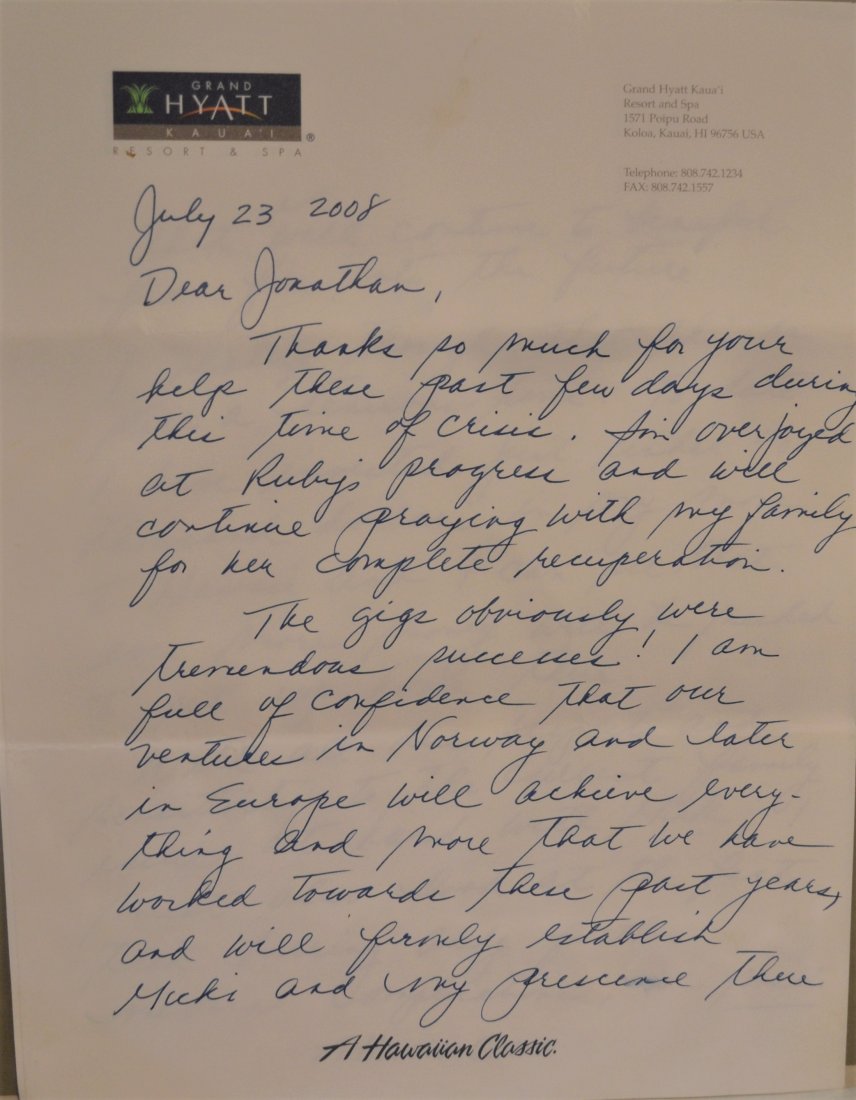 GRAND
HYATT
KAUA'I
®
RESORT & SPA
Grand Hyatt Kaua'i
Resort and Spa
1571 Poipu Road
Koloa, Kauai, HI 96756 USA
Telephone: 808.742.1234
FAX: 808.742.1557
July 23 2008
Dear Jonathan,
Thanks so much for your
help these past few days during
this time of crisis. I'm overjoyed
at Ruby's progress and will
continue praying with my family
for her complete recuperation.
The gigs obviously were
tremendous successes! I am
full of confidence that our
ventures in Norway and later
in Europe will achieve every-
thing and more that we have
worked towards these past years,
and will firmly establish
Micki and my presence there
A Hawaiian Classic.